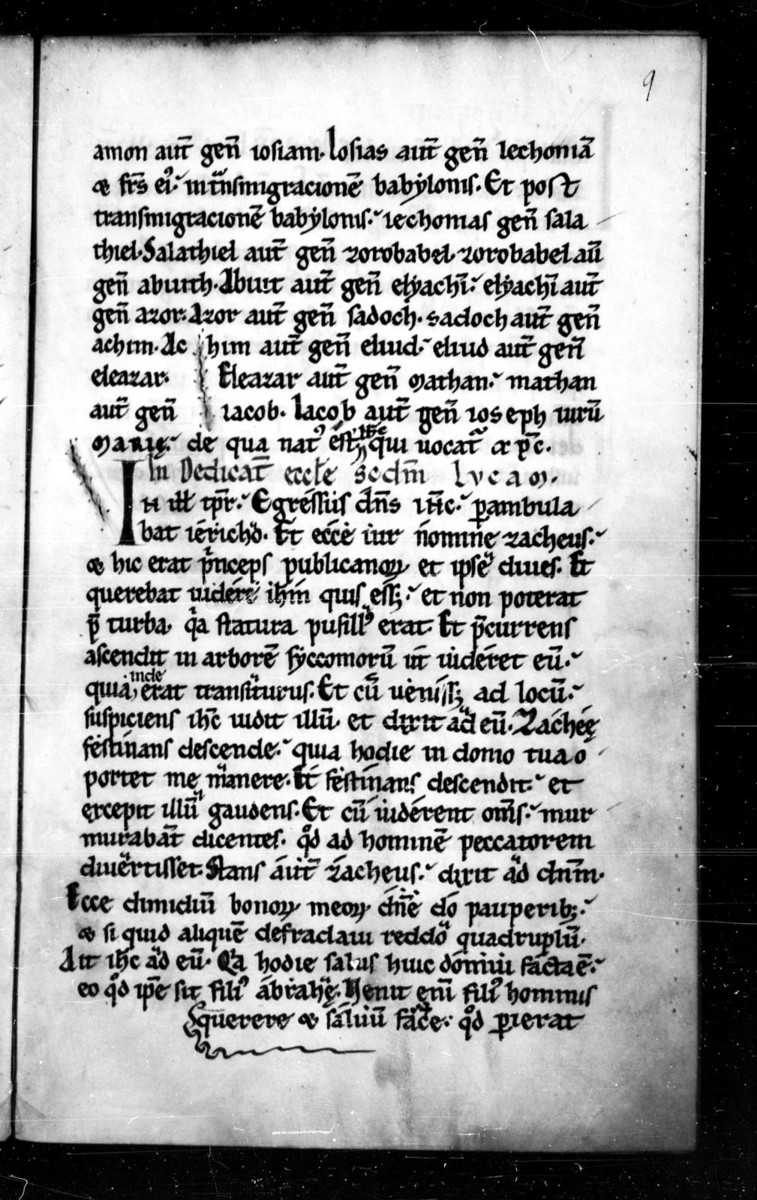 9
amon aut̄ geñ iosiam. Iosias aut̄ geñ iechoniā
& fr̄s ei᷒. in tnͣsmigracionē babylonis. Et post
transmigracionē babylonis. iechonias geñ sala
thiel. Salathiel aut̄ geñ zorobabel. zorobabel aū
geñ abiuth. Abiut aut̄ geñ elyachī. elyachī aut̄
geñ azor. Azor aut̄ geñ sadoch. sadoch aut̄ geñ
achim. Ac him aut̄ geñ eliud. eliud aut̄ geñ
eleazar. Eleazar aut̄ geñ mathan. mathan
aut̄ geñ iacob. Iacob aut̄ geñ ioseph uirū
marię. de qua nat᷒ ēst ih̄c qui uocat᷑ xp̄c.
In Dedicat̄ eccłe scdm̄ lvcam.
In ill̄ tp̄r. Egressus dn̄s ih̄c. ꝑambula
bat iericho. Et ecce uir nomine zacheus.
& hic erat pͥnceps publicanoꝝ et ipse diues. Et
querebat uidere ihm̄ quis ess&. et non poterat
p̄ turba. qͣa statura pusill᷒ erat. Et p̄currens
ascendit in arborē syccomorū ut uideret eū.
quia inde erat transiturus. Et cū ueniss& ad locū.
suspiciens ih̄c uidit illū. et dixit ad eū. Zacheę
festinans descende. quia hodie in domo tua o
portet me manere. Et festinans descendit. et
excepit illū gaudens. Et cū uiderent om̄s. mur
murabant̄ dicentes. qd̊ ad hominē peccatorem
diuertisset. Stans aut̄ zacheus. dixit ad dn̄m.
Ecce dimidiū bonoꝝ meoꝝ dn̄e do pauperib;.
& si quid aliquē defraudaui reddo quadruplū.
Ait ih̄c ad eū. Qͣa hodie salus huic domui facta ē.
eo qd̊ ip̄e sit fili᷒ abrahę. Uenit eni̅ fili᷒ hominis
querere & saluū facͤe. qd̊ ꝑierat